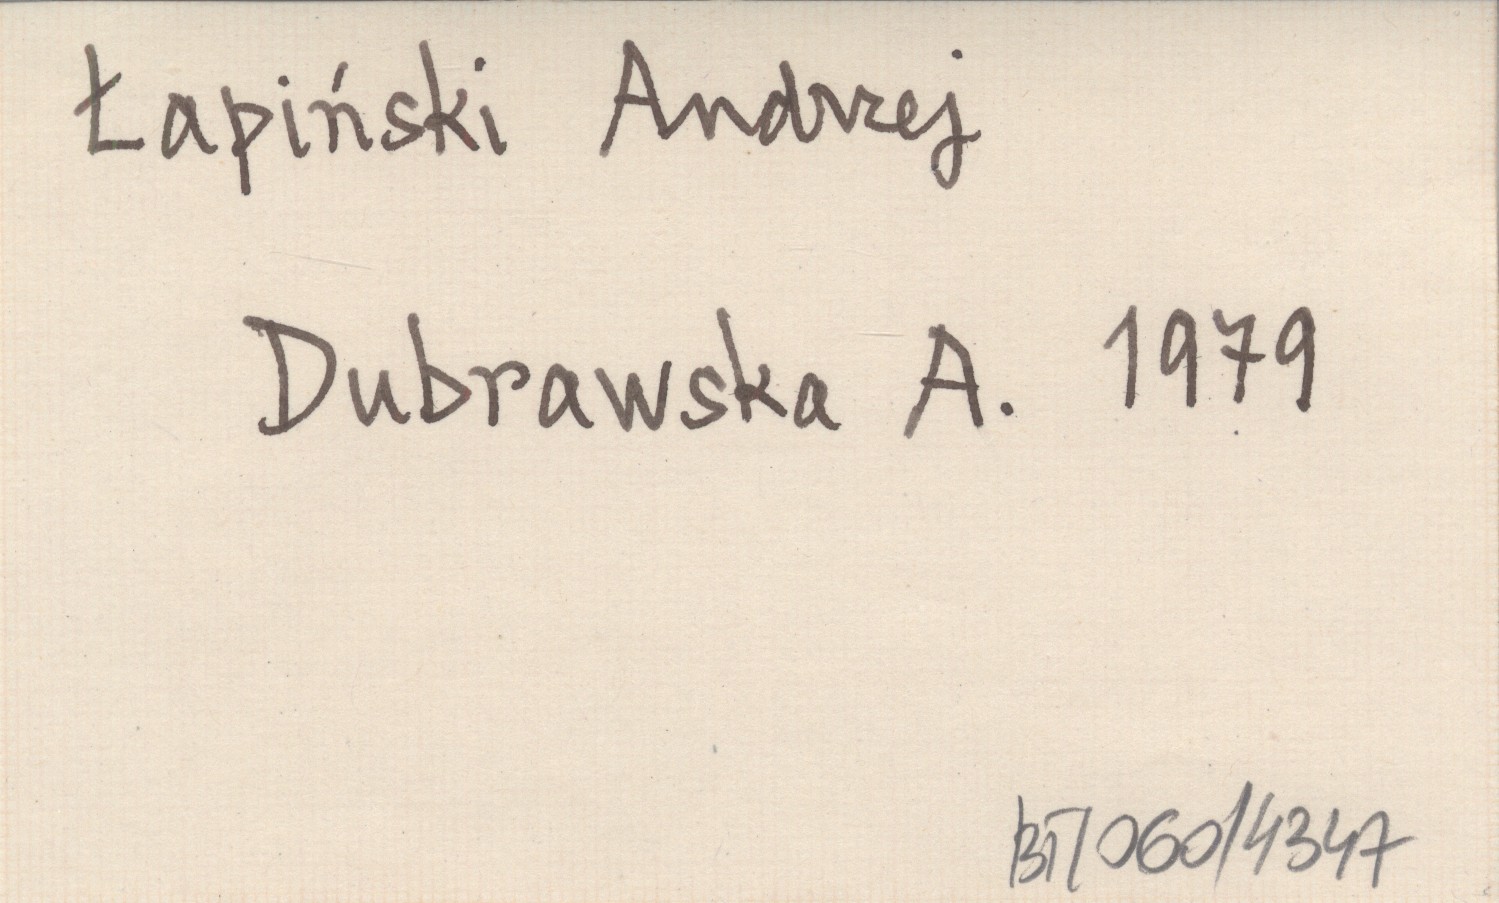 Łapiński Andrzej
Dubrawska A. 1979
BT/060/4347